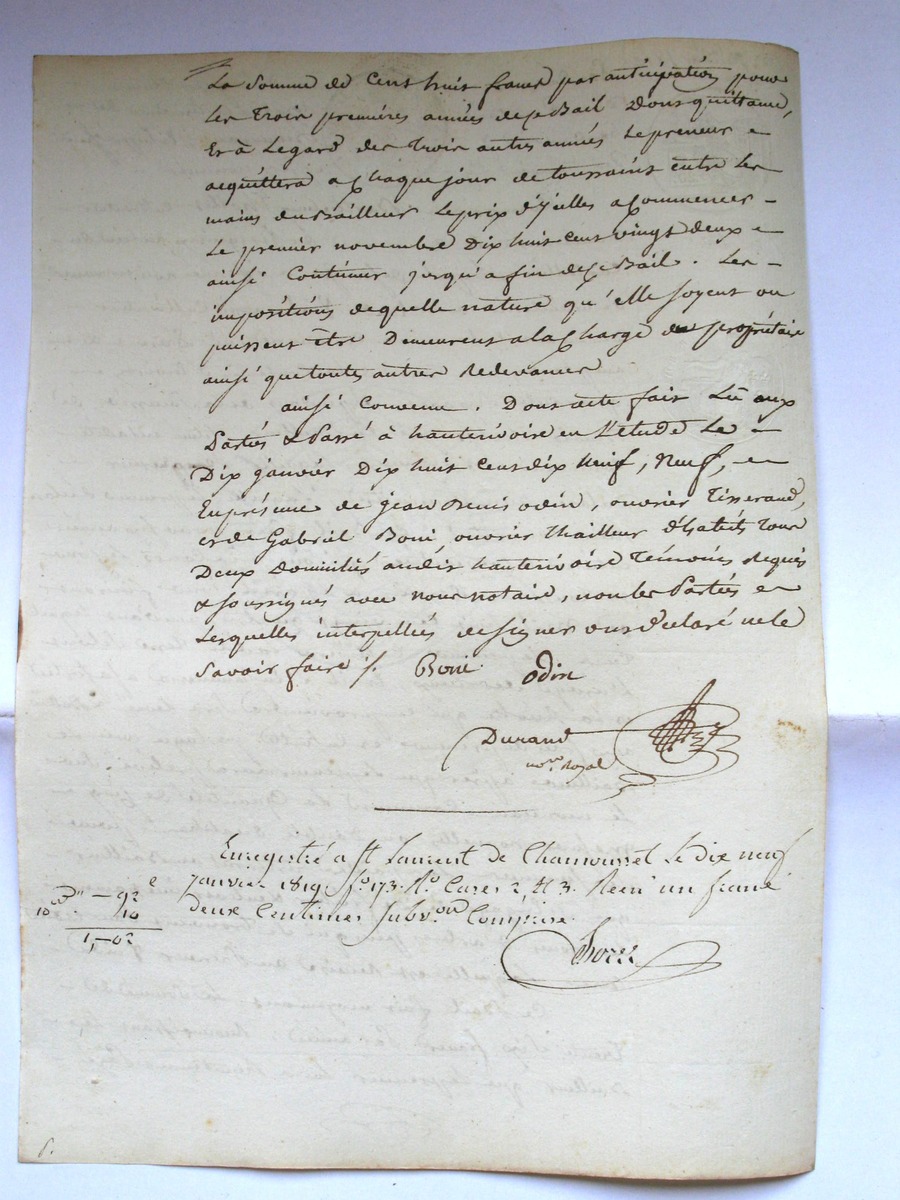 La somme de Cent huit francs par anticipation pour
les trois premieres années de ce Bail Dont quittance,
Et à Legard des Trois autres années Le preneur
acquittera a Chaque jour de toussaint entre les
mains du Bailleur Le prix d'ycelles a Commencer -
Le premier novembre Dix huit cent vingt deux
ainsi Continuer jusqu'a fin de ce Bail. Les -
impositions de quelle nature qu'elle soyent ou
puissent être Demeurent a la Charge du propriétaire
ainsi que toutes autres Redevances
ainsi Convenu. Dont acte fait Lu aux
Parties & Passé à hauterivoire en L'etude Le -
Dix janvier Dix huit cent dix Neuf, Neuf,
En présence de jean Denis odin, ouvrier Tisserand,
et de Gabriel Boni, ouvrier thailleur d'habits Tous
Deux Domiciliés audit hauterivoire Témoins Requis
& soussignés avec nous notaire, non les Parties
Lesquelles interpellées de signer ont déclaré ne le
savoir faire /. Boni odin
Durand
no.re Royal
Enregistré a St Laurent de Chamousset Le dix neuf
janvier 1819 fo. 173. Ro. Cases 2 & 3. Recu un franc
deux Centimes Subv.on Comprise.
92 c
10 10
1,-02